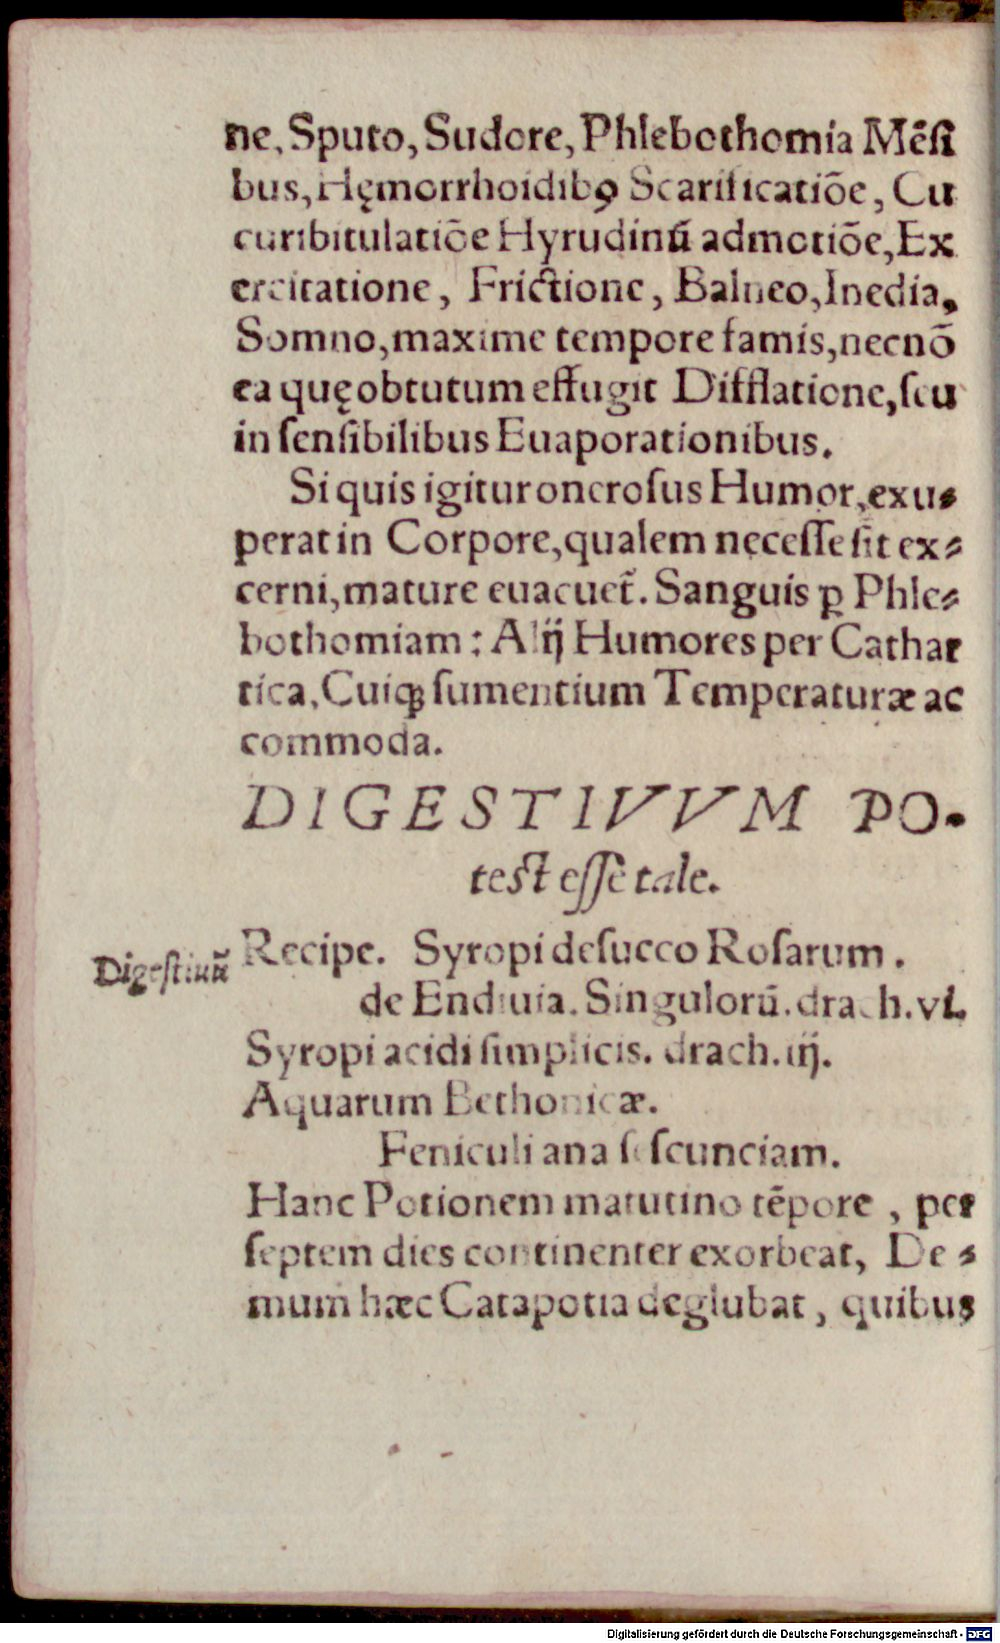 ne, Sputo, Sudore, Phlebothomia Mēſi
bus, Hęmorrhoidibꝯ Scarificatiōe, Cu
curibitulatiōe Hyrudinū admotiōe, Ex
ercitatione, Frictione, Balneo, Inedia,
Somno, maxime tempore famis, necnō
ea quę obtutum effugit Difflatione, ſeu
in ſenſibilibus Euaporationibus.
Si quis igitur oneroſus Humor, exu⸗
perat in Corpore, qualem neceſſe ſit ex⸗
cerni, mature euacuet̃. Sanguis ꝑ Phle⸗
bothomiam: Alij Humores per Cathar
tica, Cuiqꝫ ſumentium Temperaturæ ac
commoda.
DIGESTIVVM PO.
test eſſe tale.
Digeſtiuū
Recipe. Syropi de ſucco Roſarum.
de Endiuia. Singulorū. drach. vi.
Syropi acidi ſimplicis. drach. iij.
Aquarum Bethonicæ.
Feniculi ana ſeſcunciam.
Hanc Potionem matutino tēpore, per
ſeptem dies continenter exorbeat, De⸗
mum hæc Catapotia deglubat, quibus
Digitalisierung gefördert durch die Deutsche Forschungsgemeinschaft - DFG